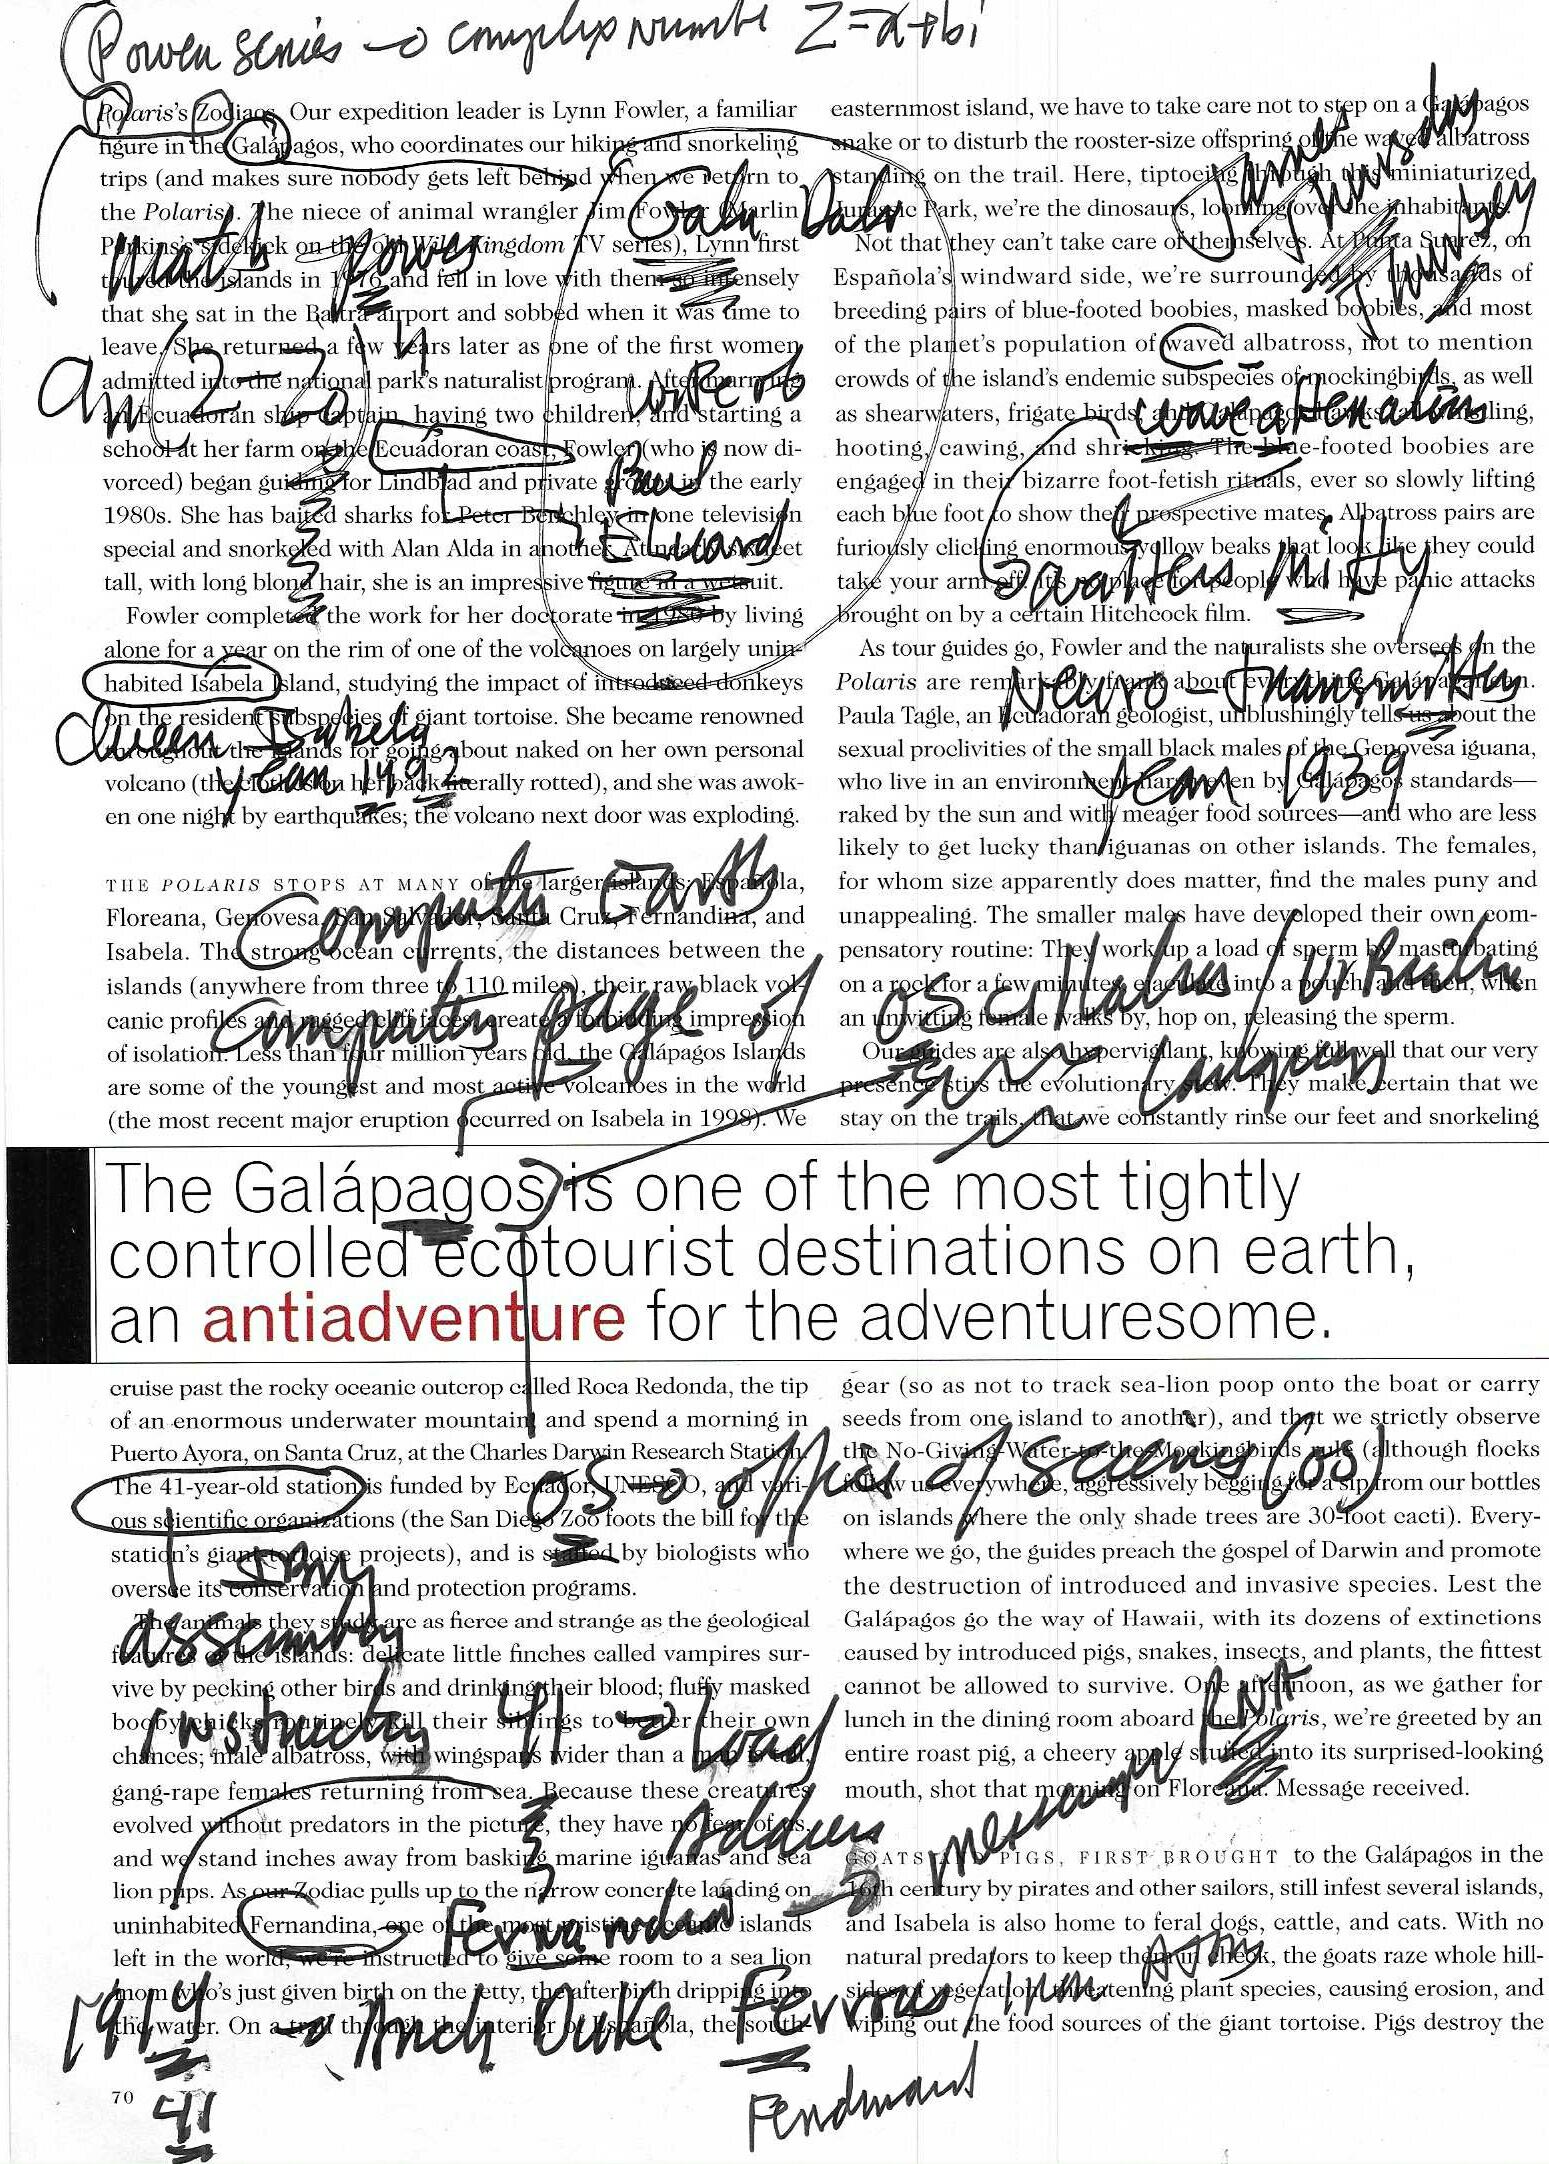 Power series → complex number Z = a + bi
Polaris's Zodiacs. Our expedition leader is Lynn Fowler, a familiar
figure in the Galápagos, who coordinates our hiking and snorkeling
trips (and makes sure nobody gets left behind when we return to
the Polaris). The niece of animal wrangler Jim Fowler (Marlin
Perkins's sidekick on the old Wild Kingdom TV series), Lynn first
toured the islands in 1976 and fell in love with them so intensely
that she sat in the Baltra airport and sobbed when it was time to
leave. She returned a few years later as one of the first women
admitted into the national park's naturalist program. After marrying
an Ecuadoran ship captain, having two children, and starting a
school at her farm on the Ecuadoran coast, Fowler (who is now di-
vorced) began guiding for Lindblad and private groups in the early
1980s. She has baited sharks for Peter Benchley in one television
special and snorkeled with Alan Alda in another. At nearly six feet
tall, with long blond hair, she is an impressive figure in a wetsuit.
Fowler completed the work for her doctorate in 1980 by living
alone for a year on the rim of one of the volcanoes on largely unin-
habited Isabela Island, studying the impact of introduced donkeys
on the resident subspecies of giant tortoise. She became renowned
throughout the islands for going about naked on her own personal
volcano (the clothes on her back literally rotted), and she was awok-
en one night by earthquakes; the volcano next door was exploding.
Math Power
Gala Dali
Paul
Eluard
Queen Isabela
year 1492
THE POLARIS STOPS AT MANY of the larger islands: Española,
Floreana, Genovesa, San Salvador, Santa Cruz, Fernandina, and
Isabela. The strong ocean currents, the distances between the
islands (anywhere from three to 110 miles), their raw black vol-
canic profiles and ragged cliff faces, create a forbidding impression
of isolation. Less than four million years old, the Galápagos Islands
are some of the youngest and most active volcanoes in the world
(the most recent major eruption occurred on Isabela in 1998). We
Computer Earth
Computer page of
easternmost island, we have to take care not to step on a Galápagos
snake or to disturb the rooster-size offspring of the waved albatross
standing on the trail. Here, tiptoeing through this miniaturized
Jurassic Park, we're the dinosaurs, looming over the inhabitants.
Not that they can't take care of themselves. At Punta Suarez, on
Española's windward side, we're surrounded by thousands of
breeding pairs of blue-footed boobies, masked boobies, and most
of the planet's population of waved albatross, not to mention
crowds of the island's endemic subspecies of mockingbirds, as well
as shearwaters, frigate birds, and Galápagos hawks, all whistling,
hooting, cawing, and shrieking. The blue-footed boobies are
engaged in their bizarre foot-fetish rituals, ever so slowly lifting
each blue foot to show their prospective mates. Albatross pairs are
furiously clicking enormous yellow beaks that look like they could
take your arm off. It's no place for people who have panic attacks
brought on by a certain Hitchcock film.
As tour guides go, Fowler and the naturalists she oversees on the
Polaris are remarkably frank about everything Galápagaean.
Paula Tagle, an Ecuadoran geologist, unblushingly tells us about the
sexual proclivities of the small black males of the Genovesa iguana,
who live in an environment harsh even by Galápagos standards—
raked by the sun and with meager food sources—and who are less
likely to get lucky than iguanas on other islands. The females,
for whom size apparently does matter, find the males puny and
unappealing. The smaller males have developed their own com-
pensatory routine: They work up a load of sperm by masturbating
on a rock for a few minutes, ejaculate into a pouch, and then, when
an unwitting female walks by, hop on, releasing the sperm.
Our guides are also hypervigilant, knowing full well that our very
presence stirs the evolutionary stew. They make certain that we
stay on the trails, that we constantly rinse our feet and snorkeling
James
Thursday
Mitty
Neuro-transmitter
year 1939
The Galápagos is one of the most tightly
controlled ecotourist destinations on earth,
an antiadventure for the adventuresome.
cruise past the rocky oceanic outcrop called Roca Redonda, the tip
of an enormous underwater mountain, and spend a morning in
Puerto Ayora, on Santa Cruz, at the Charles Darwin Research Station.
The 41-year-old station is funded by Ecuador, UNESCO, and vari-
ous scientific organizations (the San Diego Zoo foots the bill for the
station's giant-tortoise projects), and is staffed by biologists who
oversee its conservation and protection programs.
The animals they study are as fierce and strange as the geological
features of the islands: delicate little finches called vampires sur-
vive by pecking other birds and drinking their blood; fluffy masked
booby chicks routinely kill their siblings to better their own
chances; male albatross, with wingspans wider than a man is tall,
gang-rape females returning from sea. Because these creatures
evolved without predators in the picture, they have no fear of us,
and we stand inches away from basking marine iguanas and sea
lion pups. As our Zodiac pulls up to the narrow concrete landing on
uninhabited Fernandina, one of the most pristine oceanic islands
left in the world, we're instructed to give some room to a sea lion
mom who's just given birth on the jetty, the afterbirth dripping into
the water. On a trail through the interior of Española, the south-
IBM
assembly
41 → Load
Address
1914 → Arch Duke Ferrous / iron
41
Ferdinand
gear (so as not to track sea-lion poop onto the boat or carry
seeds from one island to another), and that we strictly observe
the No-Giving-Water-to-the-Mockingbirds rule (although flocks
follow us everywhere, aggressively begging for a sip from our bottles
on islands where the only shade trees are 30-foot cacti). Every-
where we go, the guides preach the gospel of Darwin and promote
the destruction of introduced and invasive species. Lest the
Galápagos go the way of Hawaii, with its dozens of extinctions
caused by introduced pigs, snakes, insects, and plants, the fittest
cannot be allowed to survive. One afternoon, as we gather for
lunch in the dining room aboard the Polaris, we're greeted by an
entire roast pig, a cheery apple stuffed into its surprised-looking
mouth, shot that morning on Floreana. Message received.
messenger RNA
GOATS AND PIGS, FIRST BROUGHT to the Galápagos in the
16th century by pirates and other sailors, still infest several islands,
and Isabela is also home to feral dogs, cattle, and cats. With no
natural predators to keep them in check, the goats raze whole hill-
sides of vegetation, threatening plant species, causing erosion, and
wiping out the food sources of the giant tortoise. Pigs destroy the
70